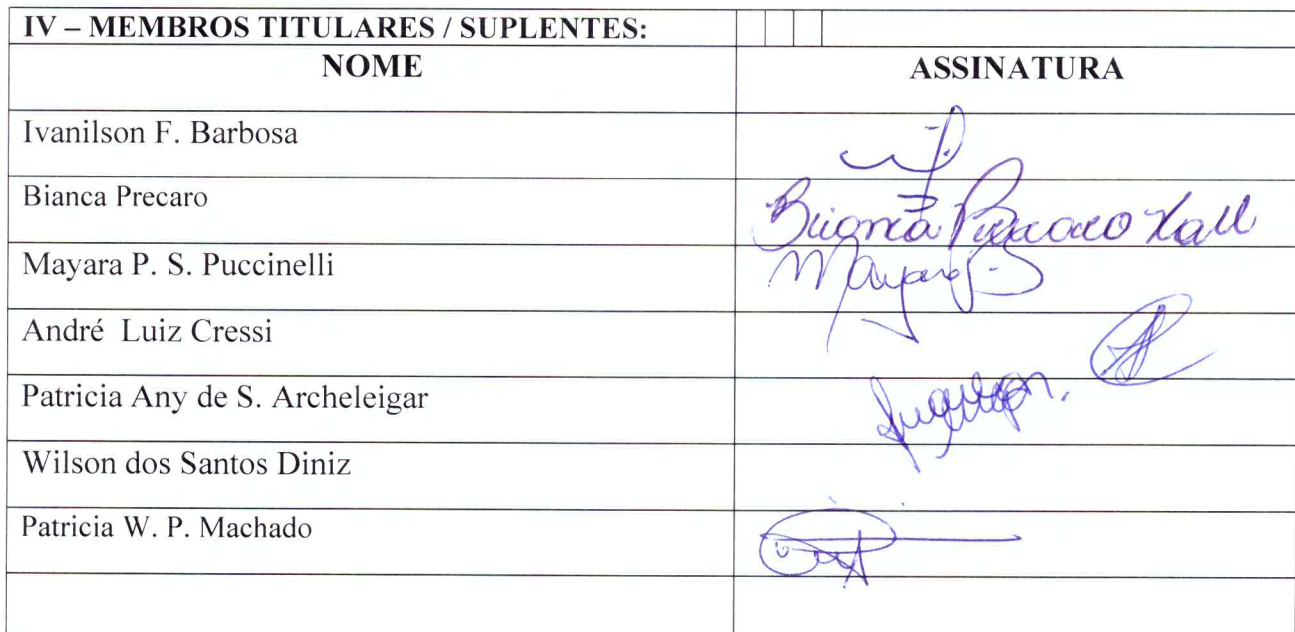 IV – MEMBROS TITULARES / SUPLENTES:
NOME ASSINATURA
Ivanilson F. Barbosa
Bianca Precaro Bianca Precaro
Mayara P. S. Puccinelli Mayara
André Luiz Cressi
Patricia Any de S. Archeleigar
Wilson dos Santos Diniz
Patricia W. P. Machado